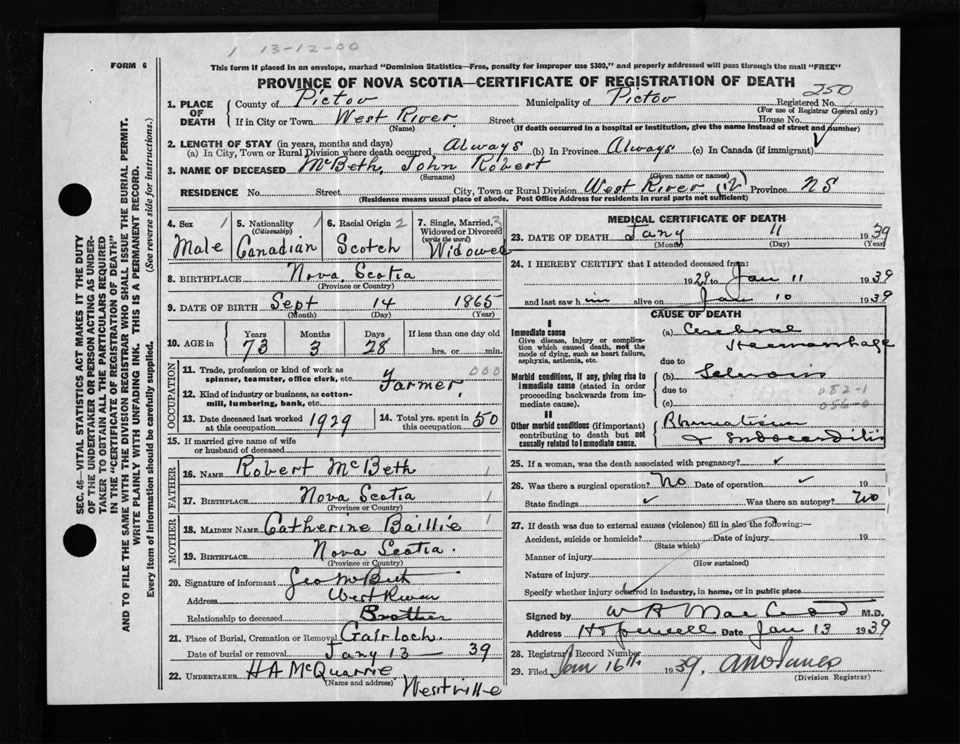 1 13-12-00
FORM 6
This form if placed in an envelope, marked "Dominion Statistics—Free, penalty for improper use $300," and properly addressed will pass through the mail "FREE"
PROVINCE OF NOVA SCOTIA—CERTIFICATE OF REGISTRATION OF DEATH
250
1. PLACE OF DEATH
County of Pictou Municipality of Pictou Registered No.
(For use of Registrar General only)
If in City or Town West River Street House No.
(Name) (If death occurred in a hospital or institution, give the name instead of street and number)
2. LENGTH OF STAY (in years, months and days)
(a) In City, Town or Rural Division where death occurred Always (b) In Province Always (c) In Canada (if immigrant) ✓
3. NAME OF DECEASED McBeth, John Robert
(Surname) (Given name or names)
RESIDENCE No. Street City, Town or Rural Division West River (12) Province NS
(Residence means usual place of abode. Post Office Address for residents in rural parts not sufficient)
4. Sex 1 5. Nationality 1 6. Racial Origin 2 7. Single, Married, 3
(Citizenship) Widowed or Divorced
(write the word)
Male Canadian Scotch Widowed
8. BIRTHPLACE Nova Scotia
(Province or Country)
9. DATE OF BIRTH Sept 14 1865
(Month) (Day) (Year)
10. AGE in Years Months Days If less than one day old
73 3 28 hrs. or min.
OCCUPATION
11. Trade, profession or kind of work as
spinner, teamster, office clerk, etc. Farmer 000
12. Kind of industry or business, as cotton-
mill, lumbering, bank, etc.
13. Date deceased last worked
at this occupation 1929
14. Total yrs. spent in
this occupation 50
15. If married give name of wife
or husband of deceased
FATHER
16. NAME Robert McBeth 1
17. BIRTHPLACE Nova Scotia 1
(Province or Country)
MOTHER
18. MAIDEN NAME Catherine Baillie 1
19. BIRTHPLACE Nova Scotia.
(Province or Country)
20. Signature of informant Geo McBeth
Address West River
Relationship to deceased Brother
21. Place of Burial, Cremation or Removal Gairloch.
Date of burial or removal Jany 13 — 39
22. UNDERTAKER H A McQuarrie
(Name and address) Westville
MEDICAL CERTIFICATE OF DEATH
23. DATE OF DEATH Jany 11 1939
(Month) (Day) (Year)
24. I HEREBY CERTIFY that I attended deceased from:
1929 to Jan 11 1939
and last saw him alive on Jan 10 1939
CAUSE OF DEATH
I
Immediate cause
Give disease, injury or complica-
tion which caused death, not the
mode of dying, such as heart failure,
asphyxia, asthenia, etc.
(a) Cerebral
Haemorrhage
due to
Morbid conditions, if any, giving rise to
immediate cause (stated in order
proceeding backwards from im-
mediate cause).
(b) Sclerosis
due to 082-1
(c) 056-0
II
Other morbid conditions (if important)
contributing to death but not
causally related to immediate cause.
Rheumatism
& Endocarditis
25. If a woman, was the death associated with pregnancy? ✓
26. Was there a surgical operation? No Date of operation ✓ 19
State findings ✓ Was there an autopsy? No
27. If death was due to external causes (violence) fill in also the following:—
Accident, suicide or homicide? Date of injury 19
(State which)
Manner of injury
(How sustained)
Nature of injury
Specify whether injury occurred in industry, in home, or in public place
Signed by M.D.
Address Hopewell Date Jan 13 1939
28. Registrar Record Number
29. Filed Jan 16th 1939.
(Division Registrar)
SEC. 46—VITAL STATISTICS ACT MAKES IT THE DUTY
OF THE UNDERTAKER OR PERSON ACTING AS UNDER-
TAKER TO OBTAIN ALL THE PARTICULARS REQUIRED
IN THE "CERTIFICATE OF REGISTRATION OF DEATH"
AND TO FILE THE SAME WITH THE DIVISION REGISTRAR WHO SHALL ISSUE THE BURIAL PERMIT.
WRITE PLAINLY WITH UNFADING INK. THIS IS A PERMANENT RECORD.
Every item of information should be carefully supplied. (See reverse side for instructions.)